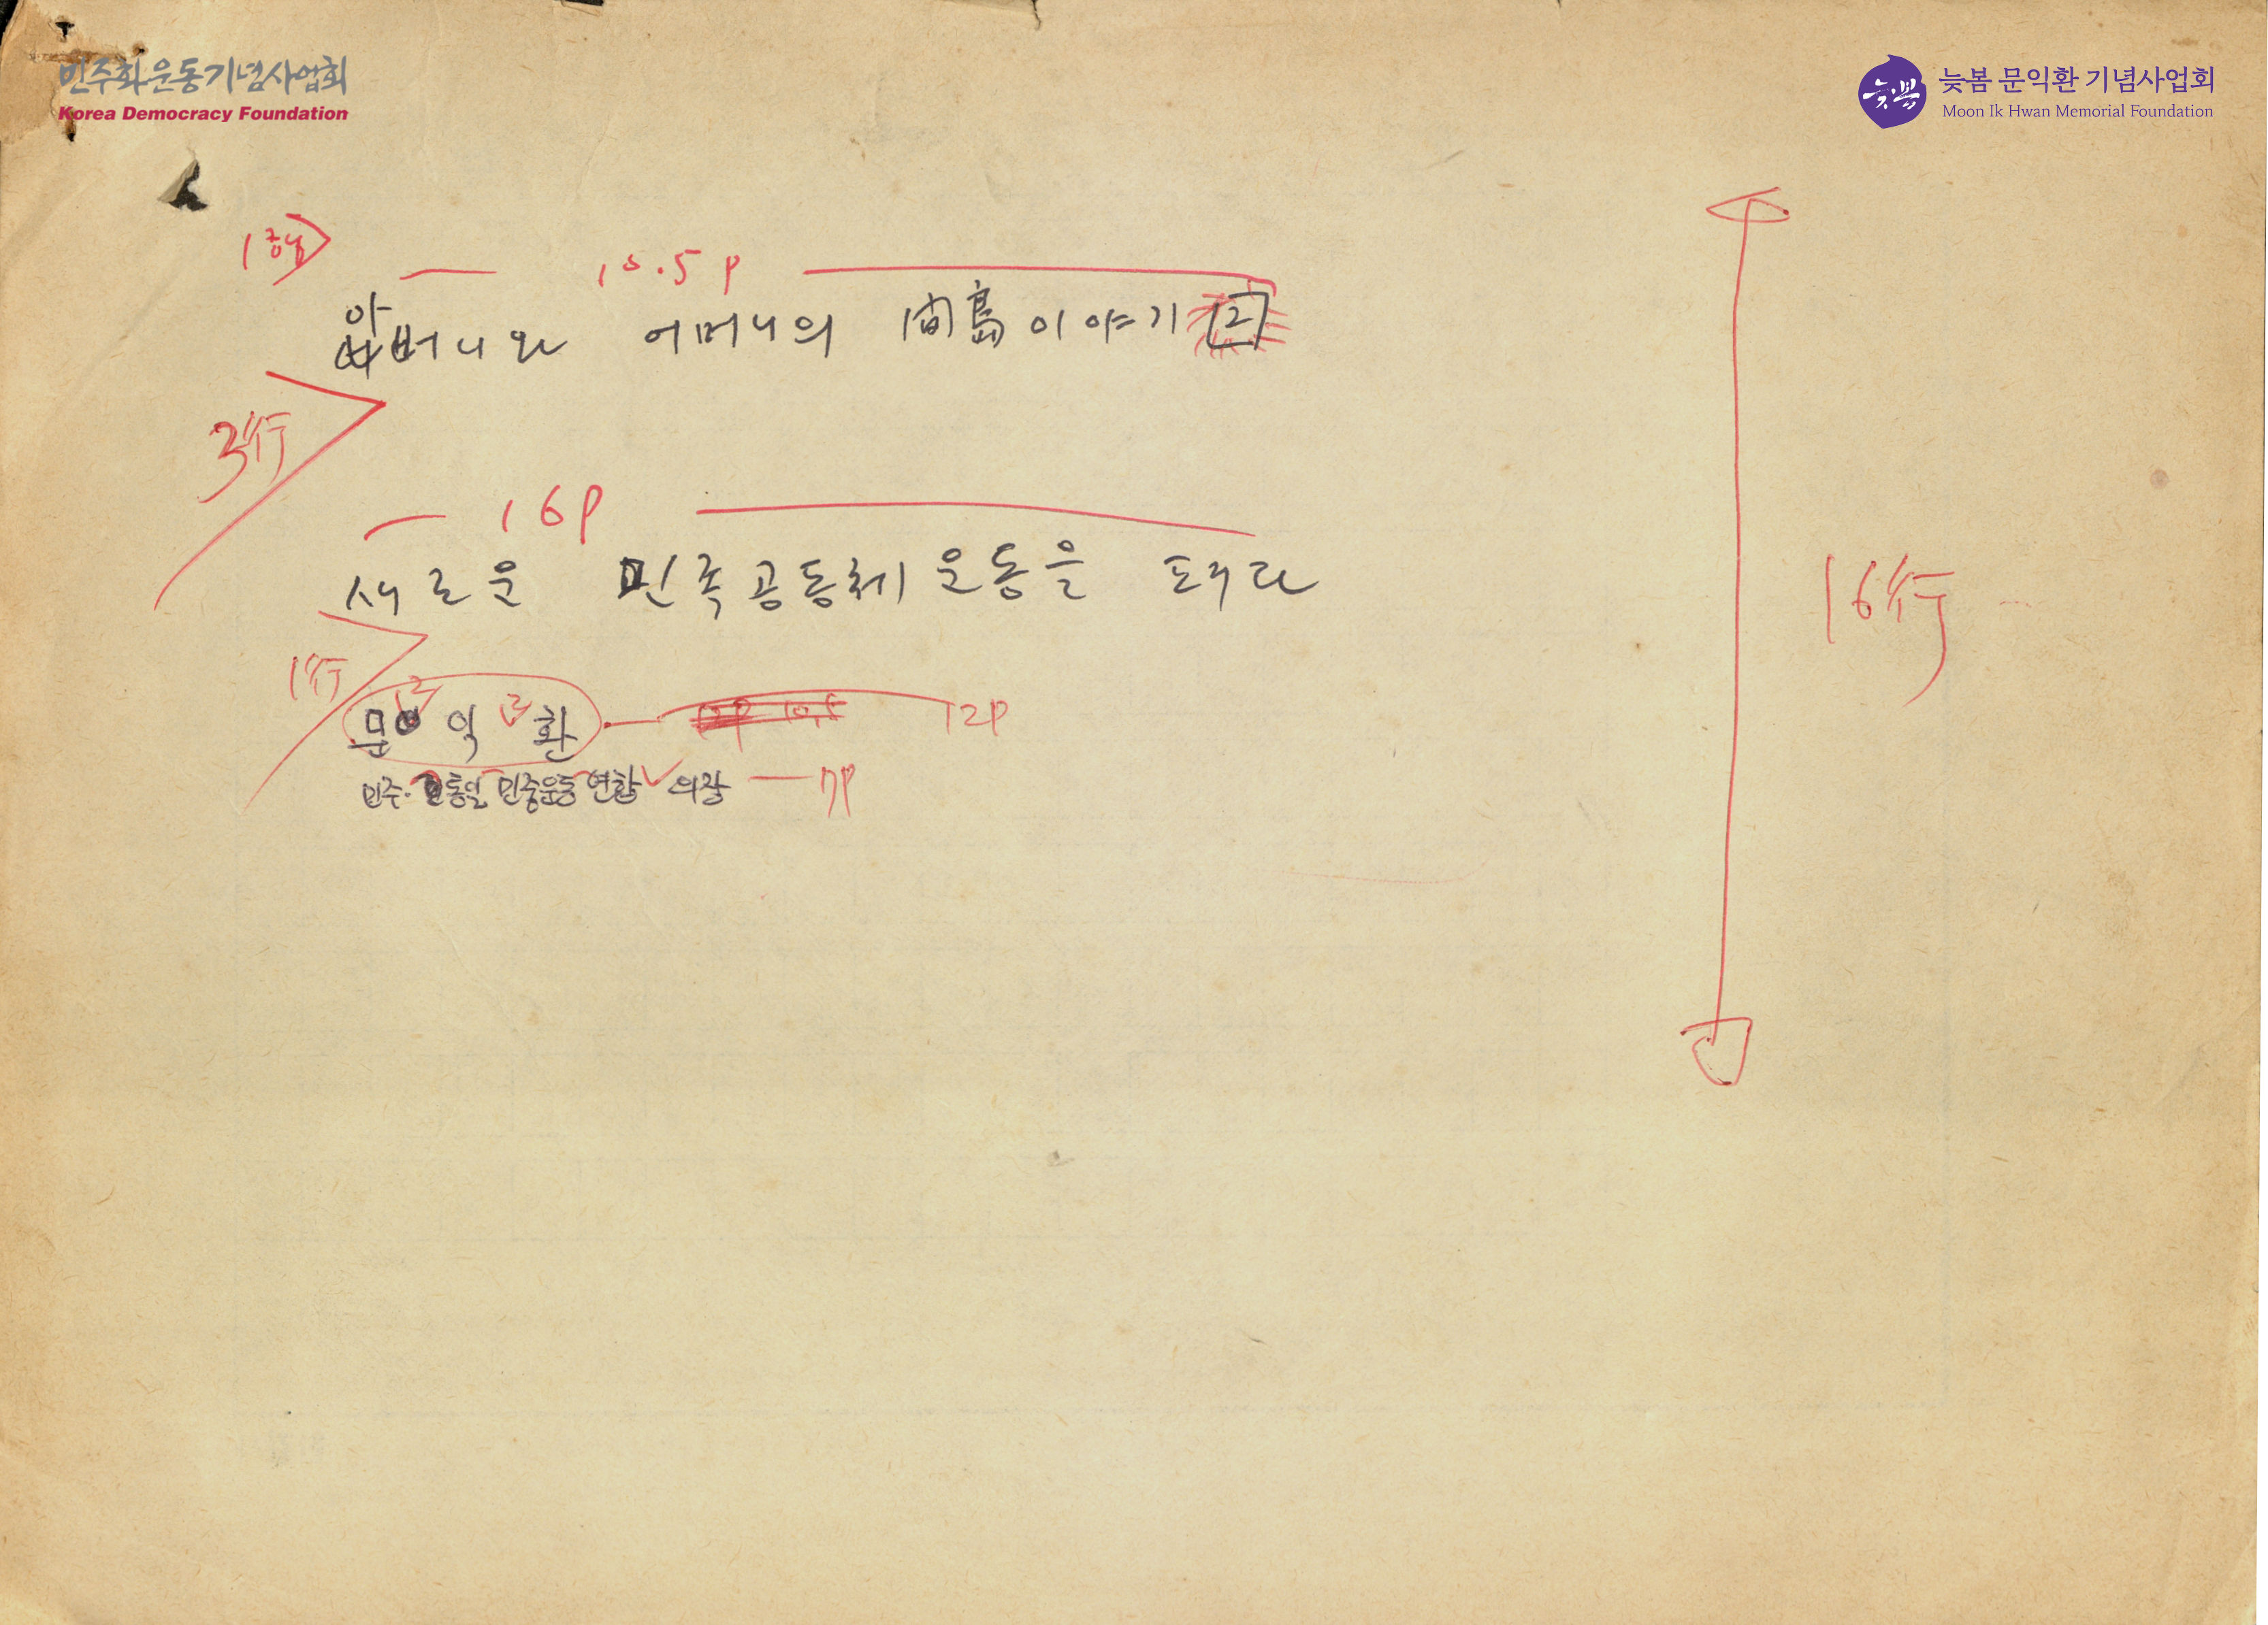 민주화운동기념사업회
Korea Democracy Foundation
늦봄 문익환 기념사업회
Moon Ik Hwan Memorial Foundation
늦봄
10.5p
아버니와 어머니의 間島이야기 2
3行
16p
새로운 민족공동체 운동을
16行
1行
문익환 12p
민주·통일 민중운동 연합 의장 7p